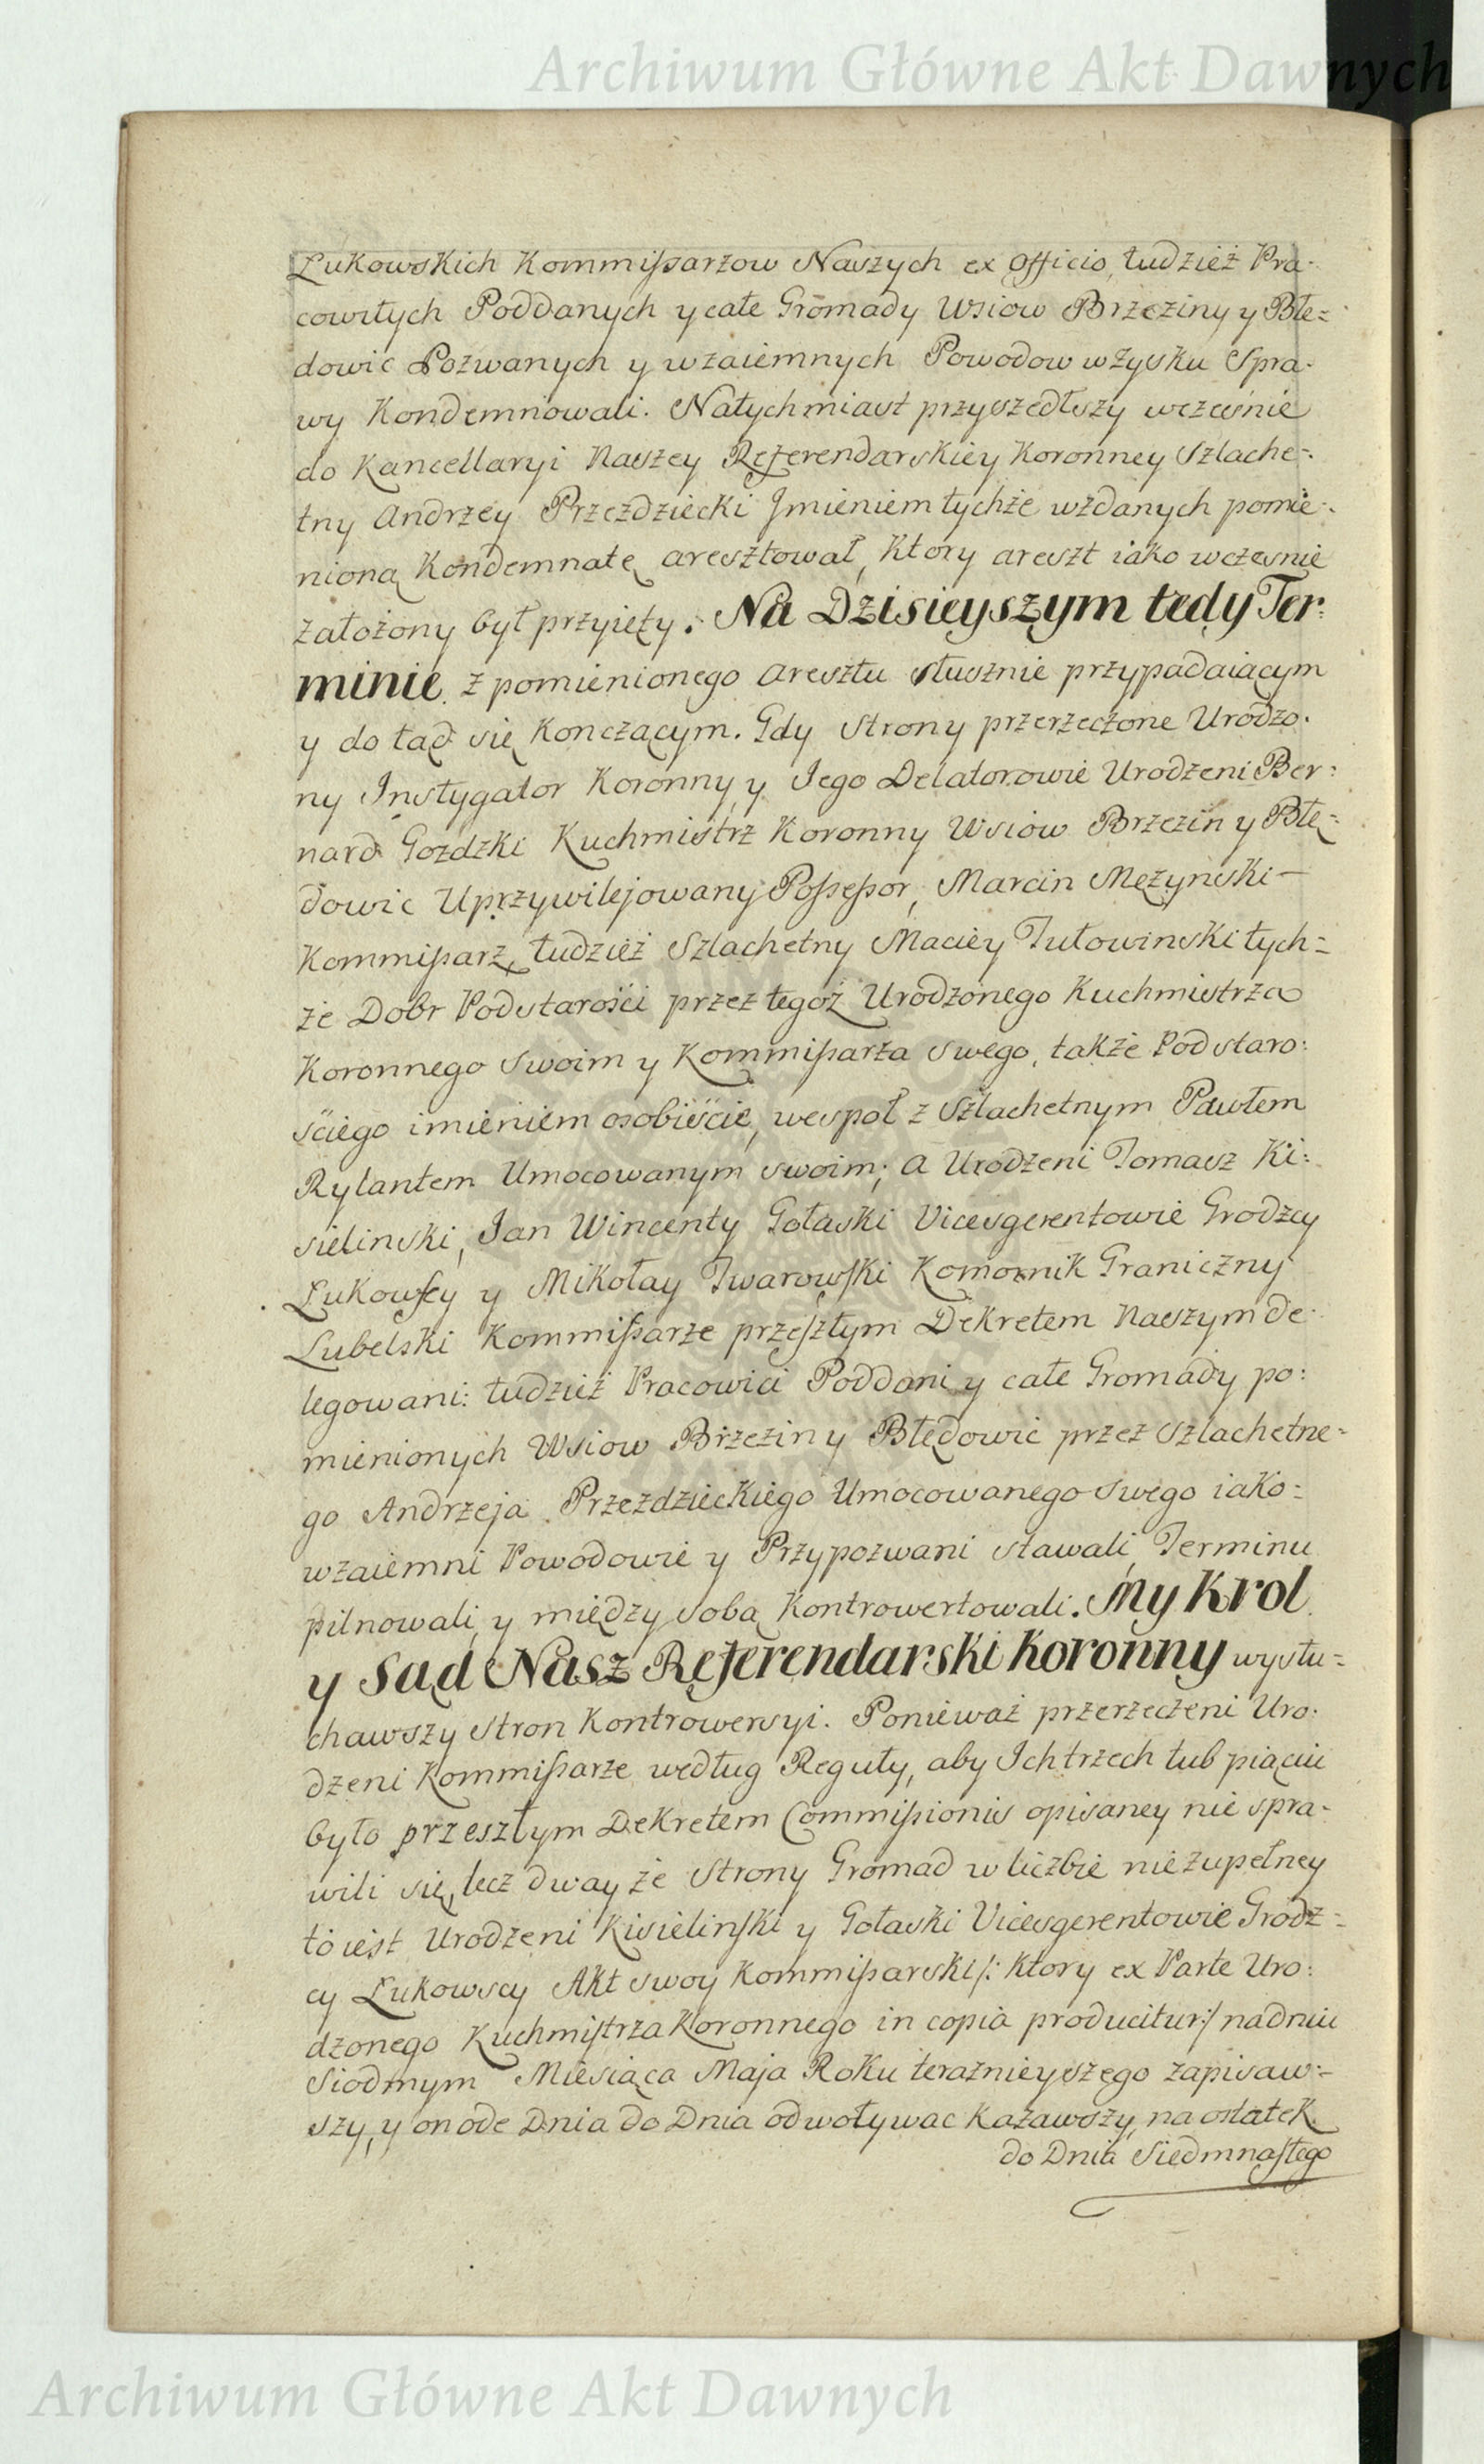 Archiwum Główne Akt Dawnych
Łukowskich Kommißarzow Naszych ex Officio, tudzież Pra-
cowitych Poddanych y całe Gromady Wsiow Brzeziny y Błe=
dowic Pozwanych y wzaiemnych Powodow wzysku Spra-
wy Kondemnowali. Natychmiast przyszedłszy wcześnie
do Kancellaryi Naszey Referendarskiey Koronney Szlache=
tny Andrzey Przezdziecki Jmieniem tychże wzdanych pomie-
nioną Kondemnatę aresztował, Ktory areszt iako wczesnie
założony był przyięty. Na Dzisieyszym tedy Ter:
minie z pomienionego aresztu słusznie przypadaiącym
y do tąd się Konczącym. Gdy Strony przerzeczone Urodzo-
ny Jnstygator Koronny, y Jego Delatorowie Urodzeni Ber:
nard Gozdzki Kuchmistrz Koronny Wsiow Brzezin y Błę=
dowic Uprzywilejowany Poßeßor, Marcin Mężynski –
Kommißarz, tudzież Szlachetny Maciey Tutowinski tych=
że Dobr Podstarości przez tegoż Urodzonego Kuchmistrza
Koronnego swoim y Kommißarza swego, także Podstaro:
ściego imieniem osobiście, wespoł z Szlachetnym Pawłem
Rylantem Umocowanym swoim; a Urodzeni Tomasz Ki:
sielinski, Jan Wincenty Gołaski Vicesgerentowie Grodzcy
Łukowscy y Mikołay Twarowski Komornik Graniczny
Lubelski Kommißarze przeszłym Dekretem Naszym de-
legowani: tudzież Pracowici Poddani y całe Gromady po:
mienionych Wsiow Brzezin y Błędowic przez Szlachetne-
go Andrzeja Przezdzieckiego Umocowanego swego iako=
wzaiemni Powodowie y Przypozwani stawali, Terminu
pilnowali, y między sobą Kontrowertowali. My Krol
y Sąd Nasz Referendarski Koronny wysłu=
chawszy Stron Kontrowersyi. Ponieważ przerzeczeni Uro-
dzeni Kommißarze według Reguły, aby Ich trzech lub piąciu
było przeszłym Dekretem Commißionis opisaney nie spra-
wili się, lecz dway że Strony Gromad w liczbie nie zupełney
to iest Urodzeni Kisielinski y Gołaski Vicesgerentowie Grodz=
cy Łukowscy Akt swoy Kommißarski /: Ktory ex Parte Uro:
dzonego Kuchmistrza Koronnego in copia producitur :/ na dniu
Siodmym Miesiąca Maja Roku teraznieyszego zapisaw:-
szy, y on ode Dnia do Dnia odwoływac Kazawszy, na ostatek
do Dnia Siedmnastego
Archiwum Główne Akt Dawnych